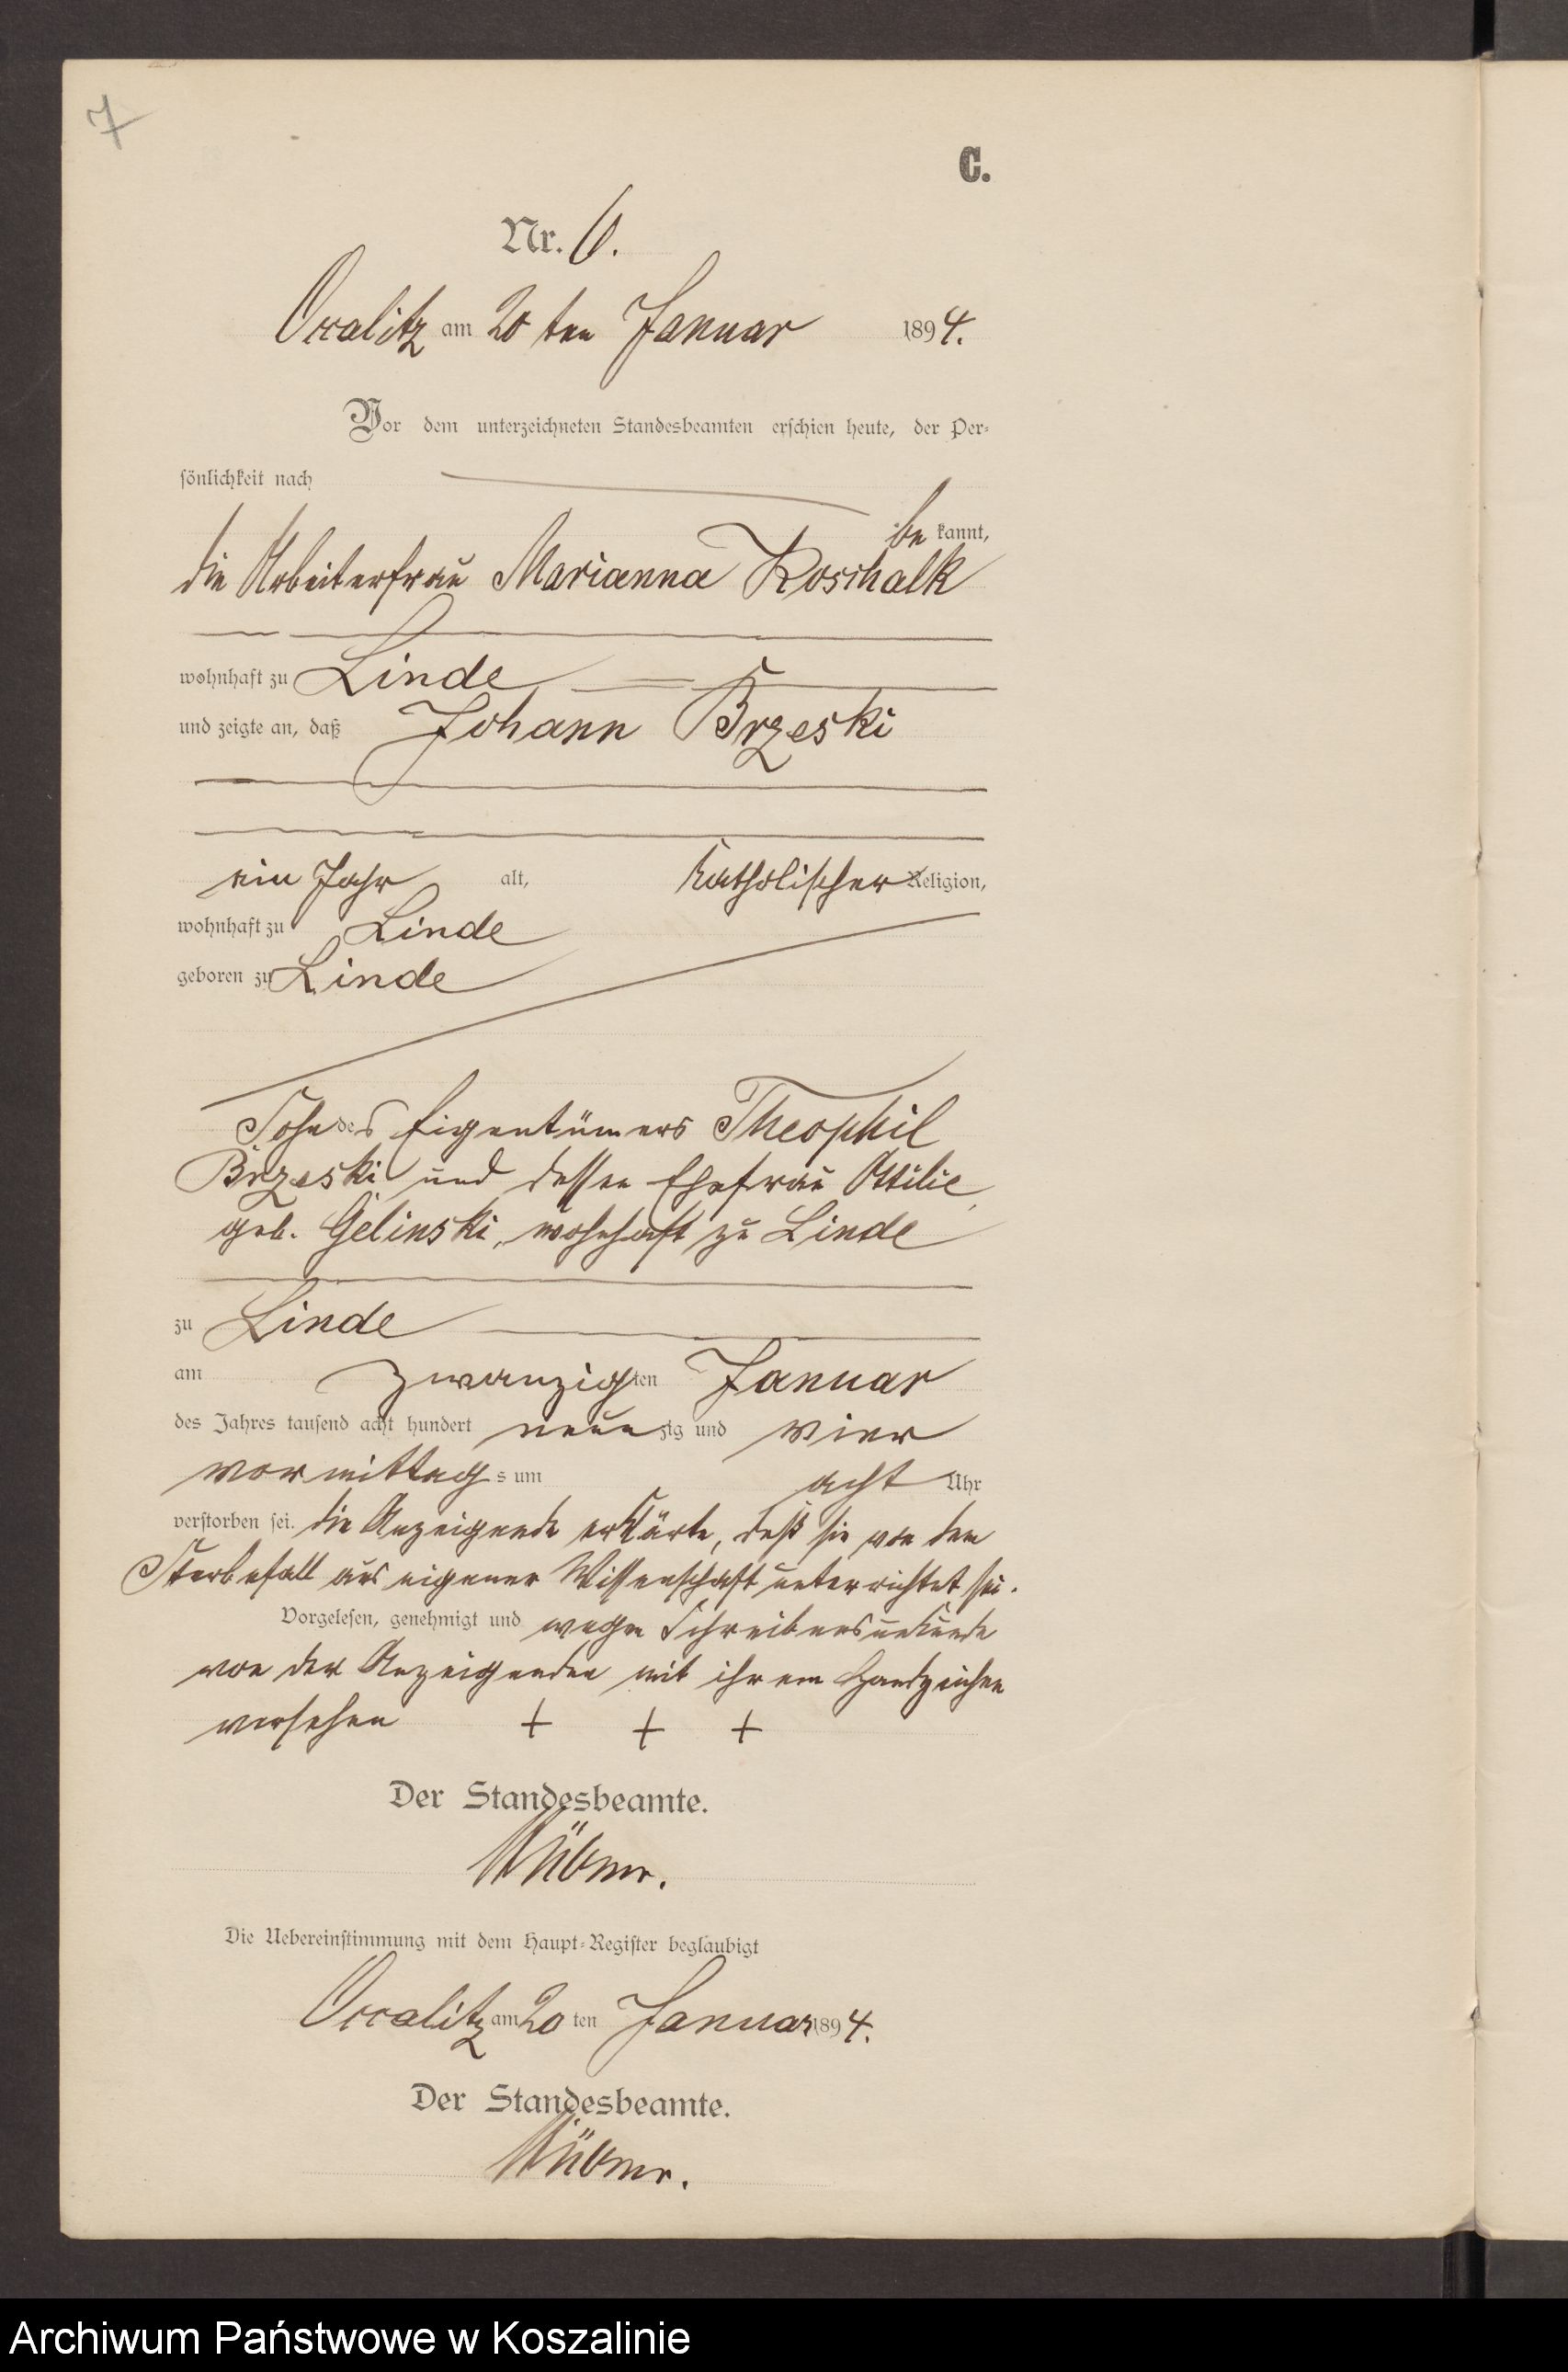 7
C.
Nr. 6.
Occalitz am 20 ten Januar 1894.
Vor dem unterzeichneten Standesbeamten erschien heute, der Per-
sönlichkeit nach
be kannt,
die Arbeiterfrau Marianna Koschalk
wohnhaft zu Linde
und zeigte an, daß Johann Brzeski
ein Jahr alt, katholischer Religion,
wohnhaft zu Linde
geboren zu Linde
Sohn des Eigentümers Theophil
Brzeski und dessen Ehefrau Ottilie
geb. Gelinski, wohnhaft zu Linde
zu Linde
am zwanzigten Januar
des Jahres tausend acht hundert neunzig und vier
vormittags um acht Uhr
verstorben sei. die Anzeigende erklärte, daß sie von dem
Sterbefall aus eigener Wissenschaft unterrichtet sei.
Vorgelesen, genehmigt und wegen Schreibensunkunde
von der Anzeigenden mit ihrem Handzeichen
versehen + + +
Der Standesbeamte.
Die Uebereinstimmung mit dem Haupt-Register beglaubigt
Occalitz am 20 ten Januar 1894.
Der Standesbeamte.
Archiwum Państwowe w Koszalinie